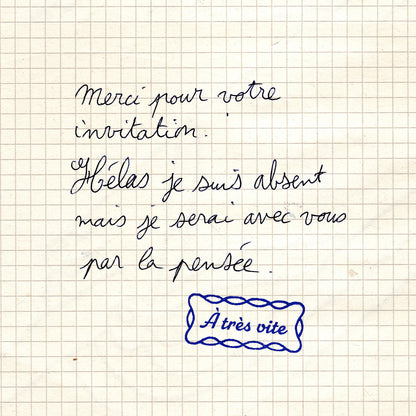 Merci pour votre
invitation.
Hélas je suis absent
mais je serai avec vous
par la pensée.
À très vite